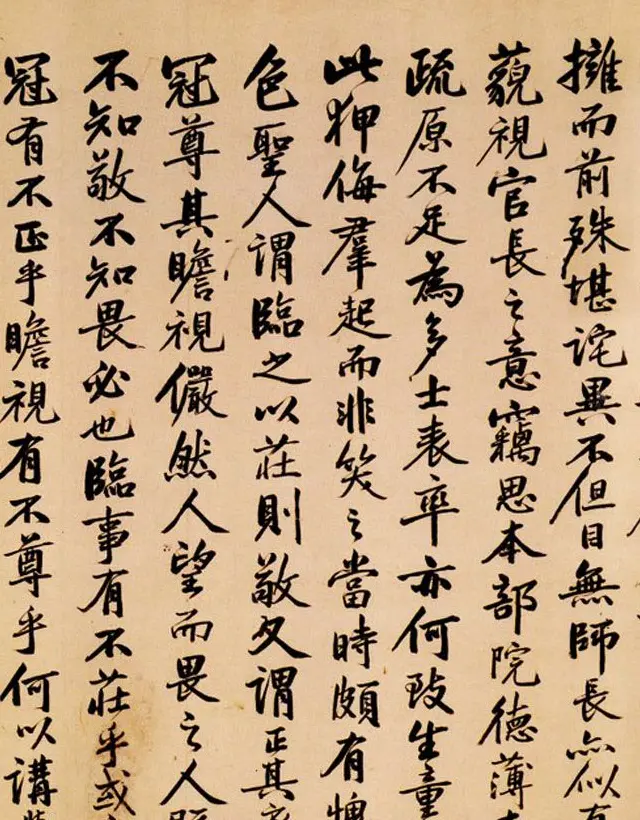 擁而前殊堪詫異不但目無師長亦似有
藐視官長之意竊思本部院德薄
疏原不足為多士表率亦何致生童
此狎侮羣起而非笑之當時頗有愧
色聖人謂臨之以莊則敬又謂正其衣
冠尊其瞻視儼然人望而畏之人
不知敬不知畏必也臨事有不莊乎或
冠有不正乎瞻視有不尊乎何以講